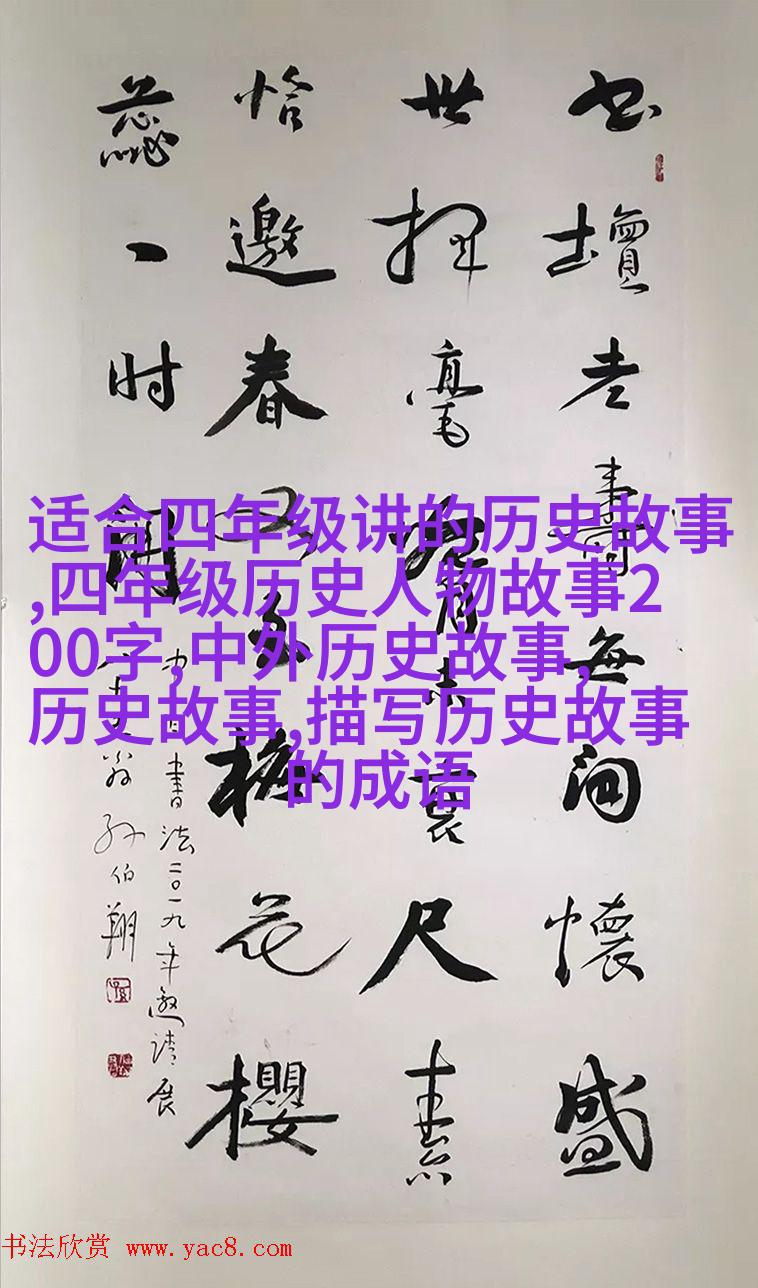 书壇老壽無间懷盛
世揮毫臂未衰尺素
恰邀春又梅花櫻
蕊一时開
中国書法二〇一九年邀請展
翁孙伯翔
适合四年级讲的历史故事
,四年级历史人物故事2
00字,中外历史故事,
历史故事,描写历史故事
的成语
书法欣赏 www.yac8.com